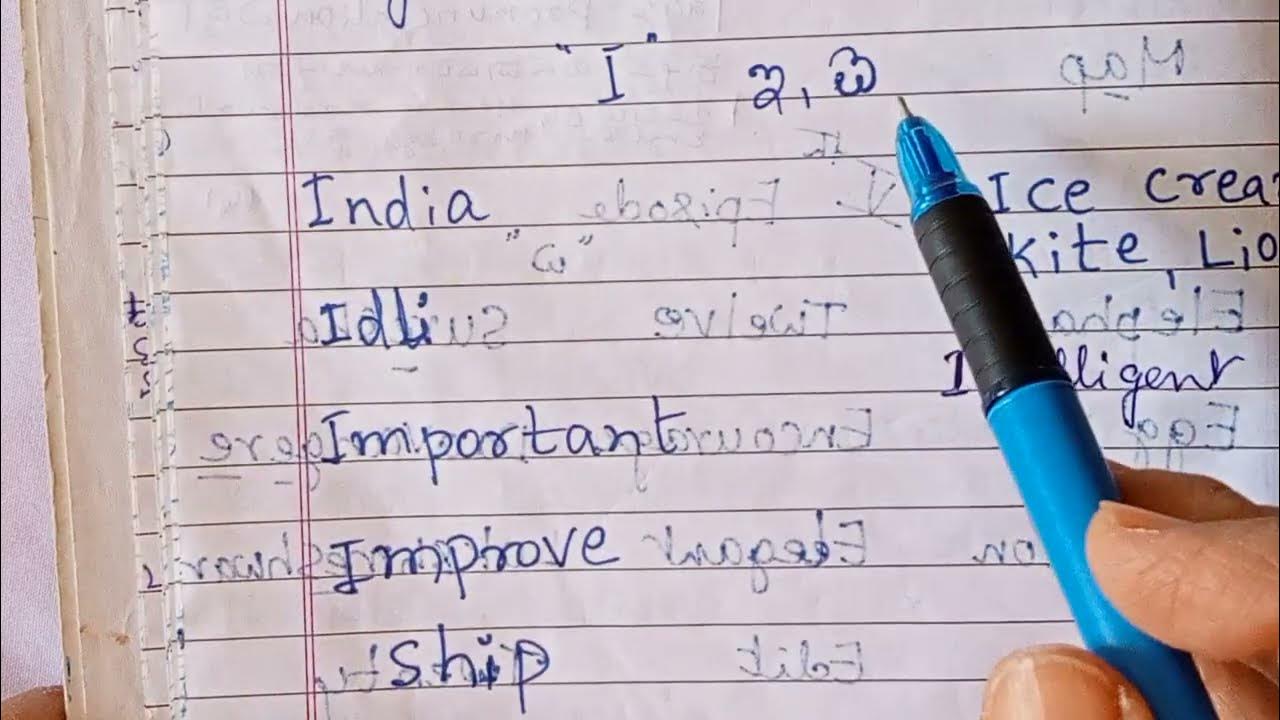 "I" ಇ, ಐ
India Ice crea
kite, Lio
Idli
lligent
Important
Improve
Ship